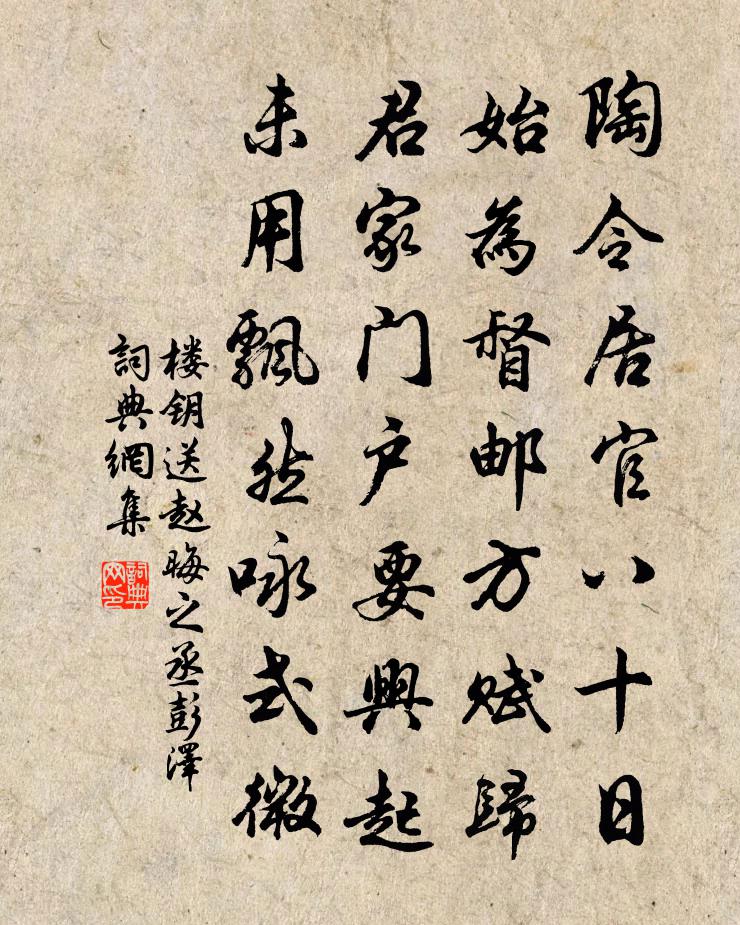 陶令居官八十日
始為督邮方赋歸
君家门户要興起
未用飄然咏式微
楼钥送赵晦之丞彭澤
詞典網集
詞典网印